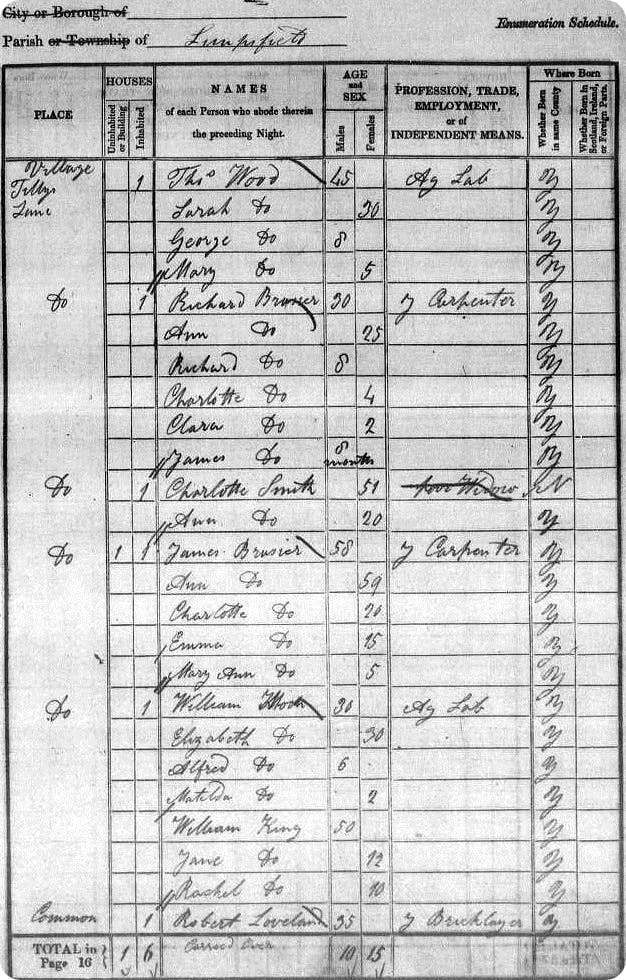 City or Borough of
Enumeration Schedule.
Parish or Township of Limpsfield
PLACE
HOUSES
Uninhabited or Building
Inhabited
NAMES
of each Person who abode therein the preceding Night.
AGE and SEX
Males
Females
PROFESSION, TRADE, EMPLOYMENT, or of INDEPENDENT MEANS.
Where Born
Whether Born in same County
Whether Born in Scotland, Ireland, or Foreign Parts.
Village Tillys Lane 1 Thos Wood 45 Ag Lab y
Sarah Do 30 y
George Do 8 y
Mary Do 5 y
Do 1 Richard Brasier 30 y Carpenter y
Ann Do 25 y
Richard Do 8 y
Charlotte Do 4 y
Clara Do 2 y
James Do 8 months y
Do 1 Charlotte Smith 51 poor Widow N
Ann Do 20 y
Do 1 1 James Brasier 58 y Carpenter y
Ann Do 59 y
Charlotte Do 20 y
Emma Do 15 y
Mary Ann Do 5 y
Do 1 William 30 Ag Lab y
Elizabeth Do 30 y
Alfred Do 6 y
Matilda Do 2 y
William King 50 y
Jane Do 12 y
Rachel Do 10 y
Common 1 Robert Loveland 35 y Bricklayer y
TOTAL in Page 16 1 6 Carried Over 10 15